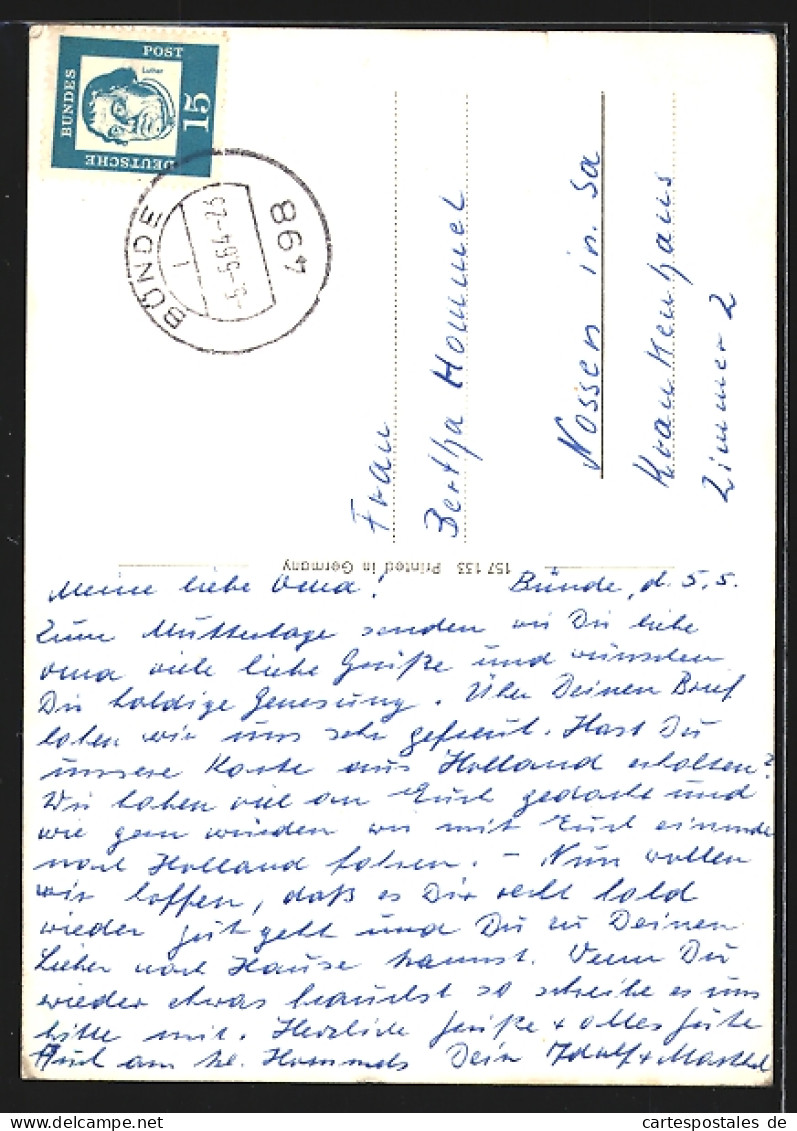 DEUTSCHE
BUNDES
POST
15
Luther
498 BÜNDE 1
-5.5.64-
Frau
Bertha Hommel
Nossen in. Sa
Krankenhaus
Zimmer 2
157 133 Printed in Germany
Meine liebe Oma! Bünde, d. 5.5.
Zum Muttertage senden wir Dir liebe
Oma viele liebe Grüße und wünschen
Dir baldige Genesung. Über Deinen Brief
haben wir uns sehr gefreut. Hast Du
unsere Karte aus Holland erhalten?
Wir haben viel an Euch gedacht und
wie gern würden wir mit Euch einmal
nach Holland fahren. – Nun wollen
wir hoffen, daß es Dir recht bald
wieder gut geht und Du zu Deinen
Lieben nach Hause kannst. Wenn Du
wieder etwas brauchst so schreibe es uns
bitte mit. Herzliche Grüße + alles Gute
Auch an Hommels Dein Adolf + Marthel
cartespostales de